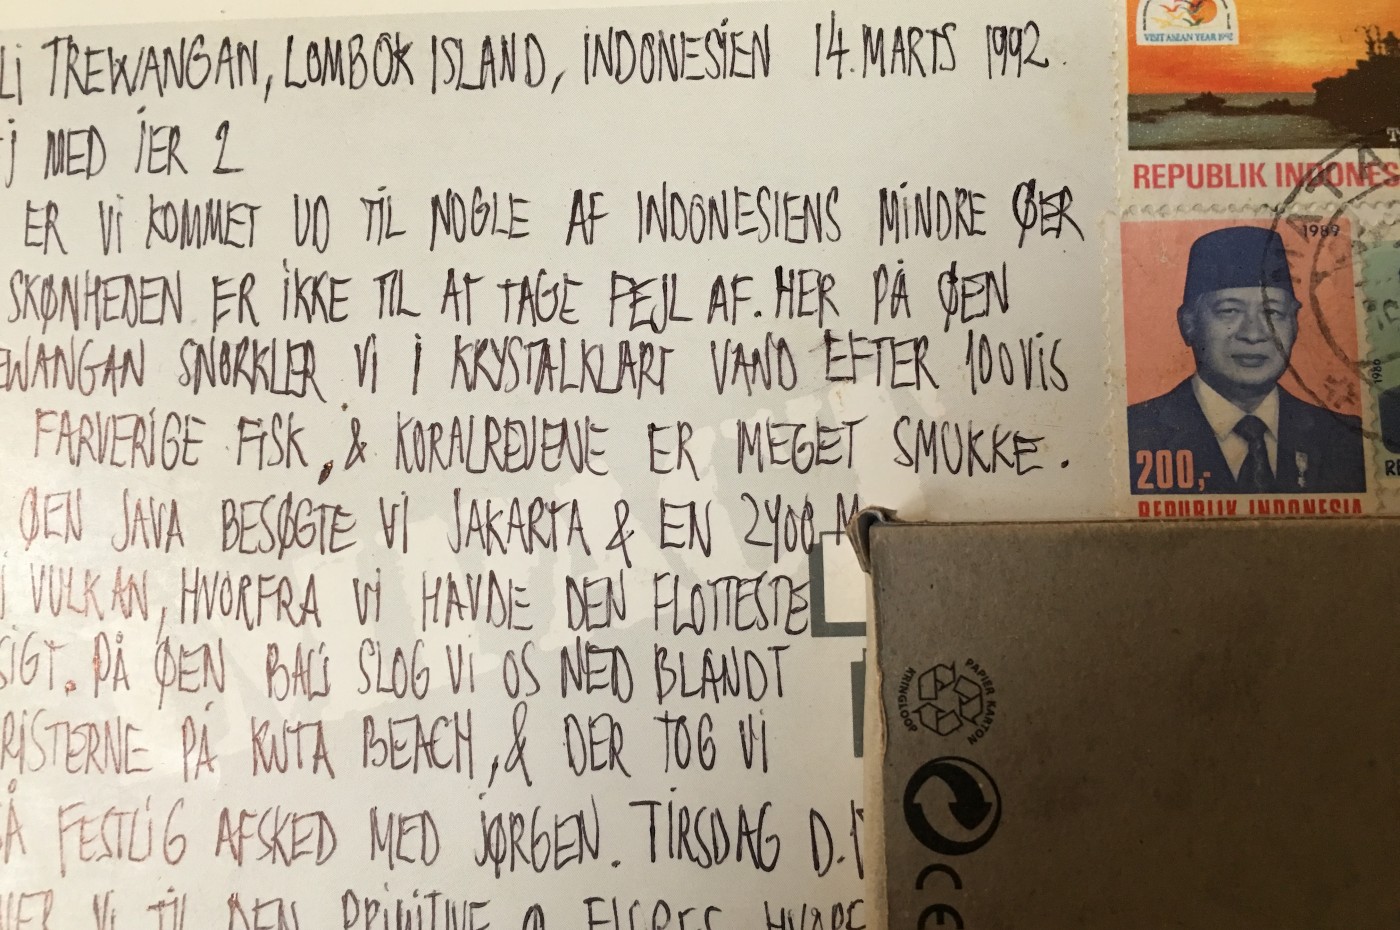 LI TREWANGAN, LOMBOK ISLAND, INDONESIEN 14. MARTS 1992.
J MED JER 2
ER VI KOMMET UD TIL NOGLE AF INDONESIENS MINDRE ØER
SKØNHEDEN ER IKKE TIL AT TAGE FEJL AF. HER PÅ ØEN
EWANGAN SNORKLER VI I KRYSTALKLART VAND EFTER 100VIS
FARVERIGE FISK, & KORALREVENE ER MEGET SMUKKE.
ØEN JAVA BESØGTE VI JAKARTA & EN 2400 M
J VULKAN, HVORFRA VI HAVDE DEN FLOTTESTE
SIGT. PÅ ØEN BALI SLOG VI OS NED BLANDT
RISTERNE PÅ KUTA BEACH, & DER TOG VI
Å FESTLIG AFSKED MED JØRGEN. TIRSDAG D.
VI TIL DEN PRIMITIVE Ø FLORES HVOR
VISIT ASEAN YEAR 1992
REPUBLIK INDONES
1989
200,-
REPUBLIK INDONESIA
1986
RE
KRINGLOOP PAPIER KARTON